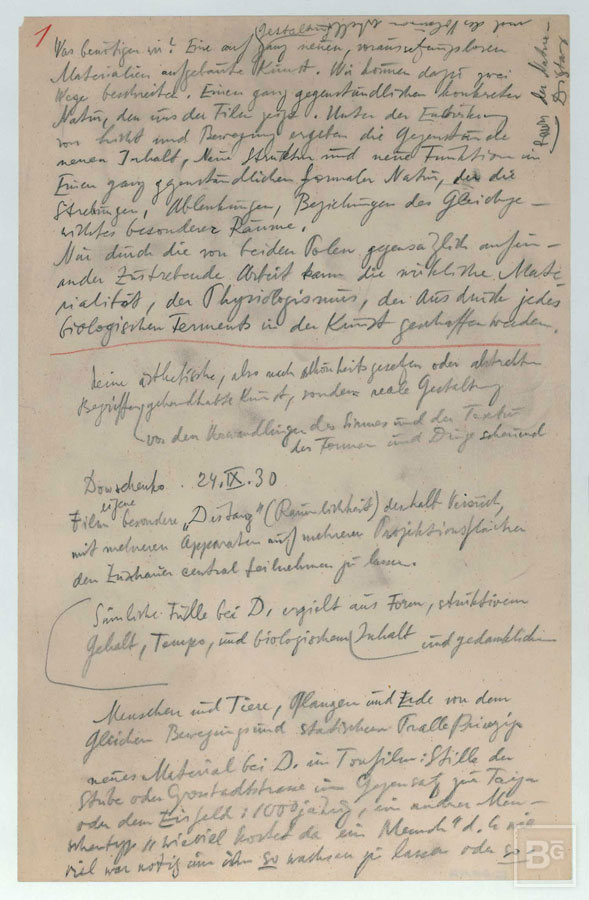 1
Was benötigen wir? Eine auf ganz neuen, voraussetzungslosen
Materialien aufgebaute Kunst. Wir können dazu zwei
Wege beschreiten. Einen ganz gegenständlichen konkreter
Natur, den uns der Film zeigt. Unter der Einwirkung
von Licht und Bewegung ergeben die Gegenstände
neuen Inhalt, Neue Struktur und neue Funktion
Einen ganz gegenständlichen formaler Natur, der die
Strebungen, Ablenkungen, Beziehungen des Gleichge-
wichtes besonderer Räume.
Nur durch die von beiden Polen gegensätzlich aufein-
ander zustrebende Arbeit kann die wirkliche Mate
rialität, der Physiologismus, der Ausdruck jedes
biologischen Ferments in der Kunst geschaffen werden.
keine ästhetische, also nach Schönheitsgesetzen oder abstrakten
Begriffen gehandhabte Kunst, sondern reale Gestaltung
von den Verwandlungen des Sinnes und der Textur
der Formen und Dinge
Dowschenko. 24.IX.30
Film eigene besondere „Distanz" (Räumlichkeit) deshalb Versuch,
mit mehreren Apparaten auf mehreren Projektionsflächen
den Zuschauer central teilnehmen zu lassen.
Sinnliche Fülle bei D. erzielt aus Form, struktivem
Gehalt, Tempo, und biologischem Inhalt und gedanklichen
Menschen und Tiere, Pflanzen und Erde von dem
Gleichen Bewegungs und statischem Prinzip
neues Material bei D. im Tonfilm: Stille der
Stube oder Grosstadtstrasse im Gegensatz zur Taiga
oder dem Eisfeld: 1000jährig, ein andrer Men-
schentyp „wieviel kostet da ein Mensch" d. h. wie
viel war nötig um ihn so wachsen zu lassen oder so
BG